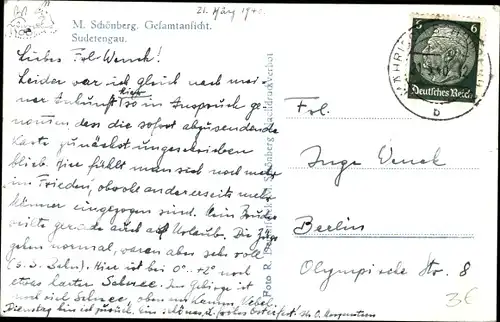 21. März 1940
M. Schönberg. Gesamtansicht.
Sudetengau.
Liebes Frl. Wenck!
Leider war ich gleich nach mei-
ner Ankunft hier so in Anspruch ge-
nommen, dass die sofort abzusendende
Karte zunächst ungeschrieben
blieb. Hier fühlt man sich noch mehr
im Frieden, obwohl andererseits mehr
Männer eingezogen sind. Mein Bruder
weilte gerade auch auf Urlaub. Die Züge
gehen normal, waren aber sehr voll
(s. z. Zehn). Hier ist bei 0° +2° noch
etwas harter Schnee. Im Gebirge ist
noch viel Schnee, oben
Nebel.
Dienstag bin ich zurück. Ein
frohes Osterfest!
Foto R.
M. Schönberg Nachdruck verboten
6
6
Deutsches Reich
MÄHRISCH
b
Frl.
Inge Wenck
Berlin
Olympische Str. 8
3€